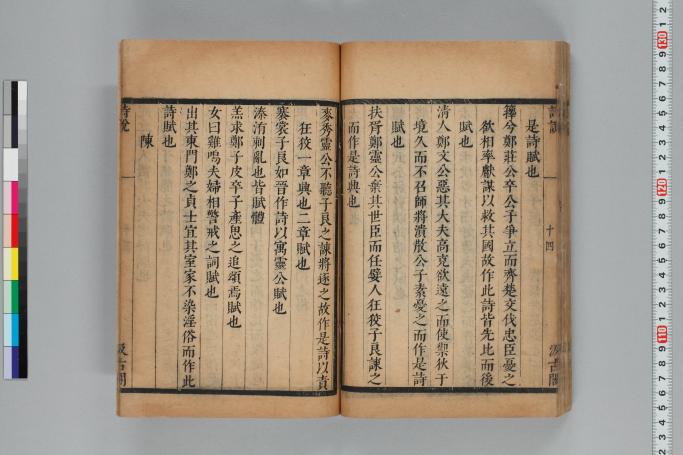 詩說
十四
汲古閣
是詩賦也
籜兮鄭莊公卒公子爭立而齊楚交伐忠臣憂之
欲相率獻謀以救其國故作此詩皆先比而後
賦也
清人鄭文公惡其大夫高克欲遠之而使禦狄于
境久而不召師將潰散公子素憂之而作是詩
賦也
扶胥鄭靈公棄其世臣而任嬖人狂狡子良諫之
而作是詩興也
麥秀靈公不聽子良之諫將逐之故作是詩以責
狂狡一章興也二章賦也
褰裳子良如晉作詩以寓靈公賦也
溱洧刺亂也皆賦體
羔求鄭子皮卒子產思之追頌焉賦也
女曰雞鳴夫婦相警戒之詞賦也
出其東門鄭之貞士宜其室家不染淫俗而作此
詩賦也
陳
詩說
汲古閣
130
120
110